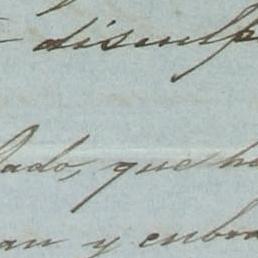 disculp
lado, que ha
an y enbo